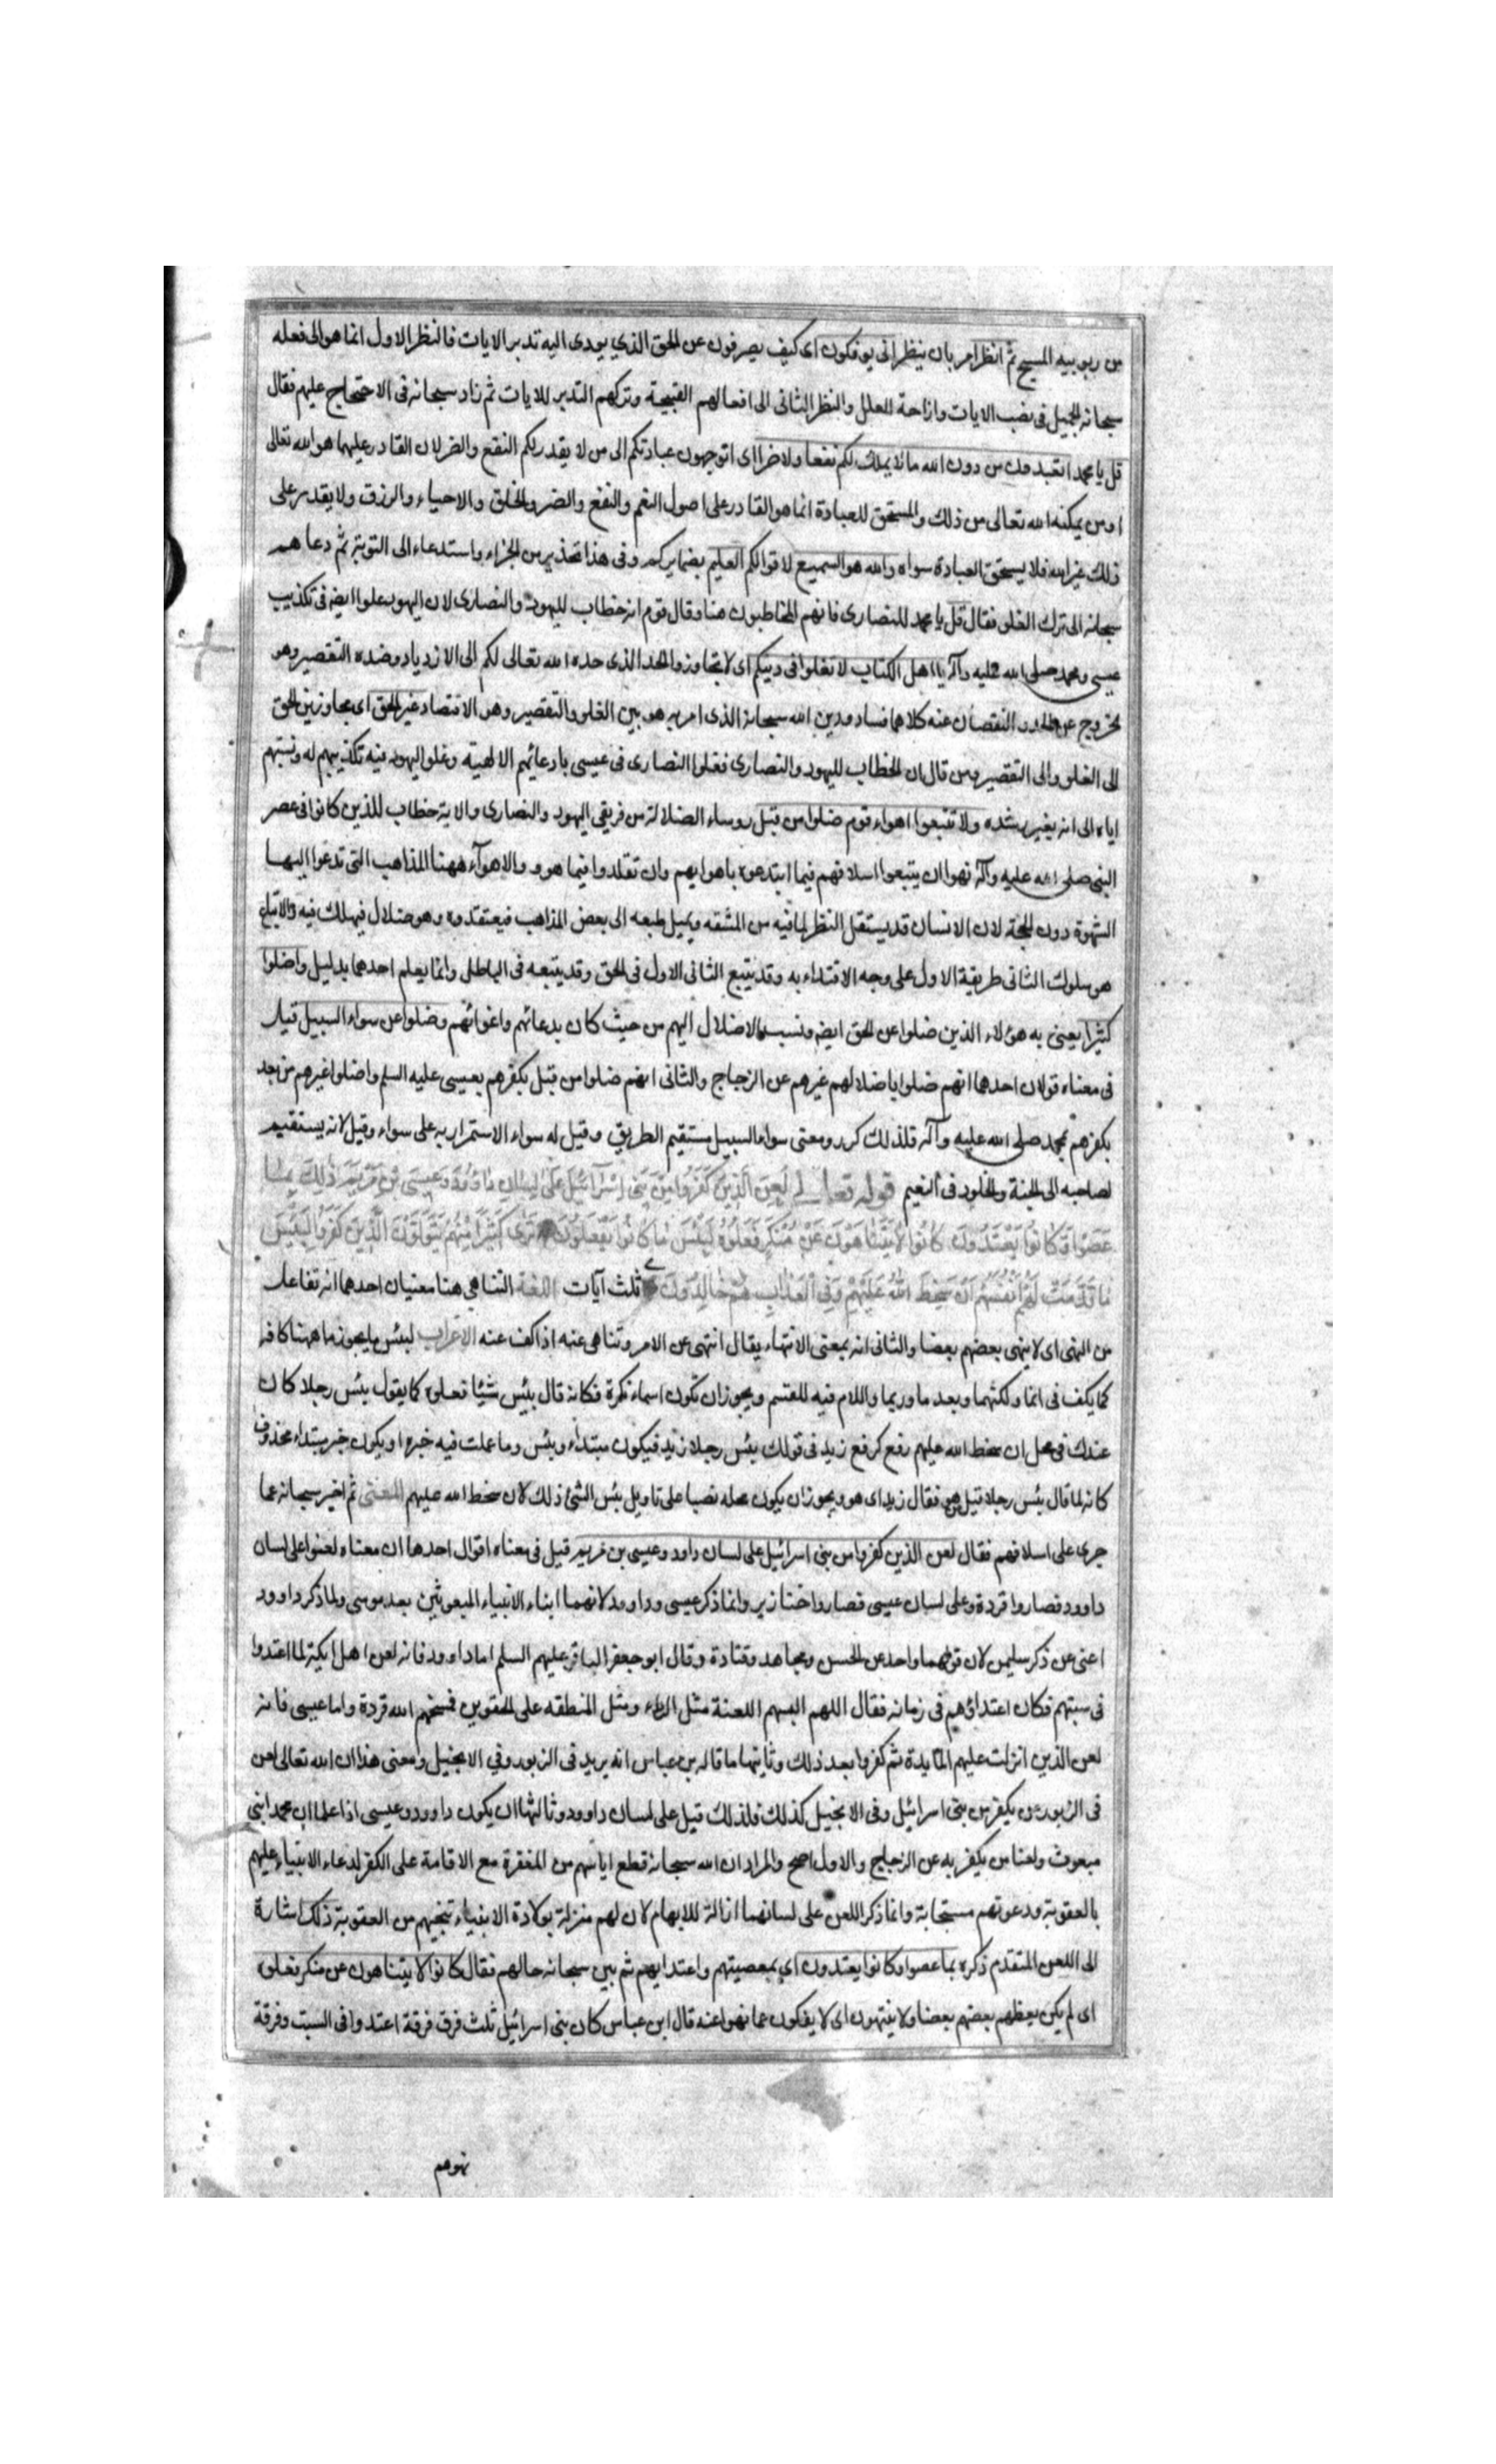 من ربوبيه المسيح ثم انظر امر بان ينظر انى يوفكون اى كيف يصرفون عن الحق الذي يودى اليه تدبر الايات فالنظر الاول انما هو الى فعله
سبحانه الجميل فى نصب الايات وازاحة العلل والنظر الثانى الى افعالهم القبيحة وتركهم التدبر للايات ثم زاد سبحانه فى الاحتجاج عليهم فقال
قل يا محمد اتعبدون من دون الله ما لا يملك لكم نفعا ولا ضرا اى اتوجهون عبادتكم الى من لا يقدر لكم النفع والضر لان القادر عليهما هو الله تعالى
او من يمكنه الله تعالى من ذلك والمستحق للعبادة انما هو القادر على اصول النعم والنفع والضر والخلق والاحياء والرزق ولا يقدر على
ذلك غير الله فلا يستحق العبادة سواه والله هو السميع لاقوالكم العليم بضمايركم وفى هذا تحذير من الجزاء واستدعاء الى التوبة ثم دعاهم
سبحانه الى ترك الغلو فقال قل يا محمد للنصارى فانهم المخاطبون هنا وقال قوم انه خطاب لليهود والنصارى لان اليهود غلوا ايضا فى تكذيب
عيسى ومحمد صلى الله عليه وآله يا اهل الكتاب لا تغلوا فى دينكم اى لا تتجاوزوا الحد الذى حده الله تعالى لكم الى الازدياد وضده التقصير وهو
الخروج عن الحد والنقصان عنه كلاهما فساد ودين الله سبحانه الذى امر به هو بين الغلو والتقصير وهو الاقتصاد غير الحق اى مجاوزين الحق
الى الغلو والى التقصير ومن قال ان الخطاب لليهود والنصارى فغلوا النصارى فى عيسى بادعائهم الالهية وغلو اليهود فيه تكذيبهم له ونسبتهم
اياه الى انه بغير رشده ولا تتبعوا اهواء قوم ضلوا من قبل روساء الضلالة من فريقى اليهود والنصارى والاية خطاب للذين كانوا فى عصر
النبى صلى الله عليه وآله نهوا ان يتبعوا اسلافهم فيما ابتدعوه باهوايهم وان تقلدوا فيما هووه والاهوآء ههنا المذاهب التى تدعوا اليها
الشهوة دون الحجة لان الانسان قد يستثقل النظر لما فيه من المشقه ويميل طبعه الى بعض المذاهب فيعتقده وهو ضلال فيهلك فيه والاتباع
هو سلوك الثانى طريقة الاول على وجه الاقتداء به وقد يتبع الثانى الاول فى الحق وقد يتبعه فى الباطل وانما يعلم احدهما بدليل واضلوا
كثيرا يعنى به هؤلاء الذين ضلوا عن الحق ايضا ونسب الاضلال اليهم من حيث كان بدعائهم واغوائهم وضلوا عن سواء السبيل قيل
فى معناه قولان احدهما انهم ضلوا باضلالهم غيرهم عن الزجاج والثانى انهم ضلوا من قبل بكفرهم بعيسى عليه السلم واضلوا غيرهم من بعد
بكفرهم بمحمد صلى الله عليه وآله فلذلك كرر ومعنى سواء السبيل مستقيم الطريق وقيل له سواء الاستمراره على سواء وقيل لانه يستقيم
لصاحبه الى الجنة والخلود فى النعيم قوله تعالى لُعِنَ الَّذِينَ كَفَرُوا مِنْ بَنِي إِسْرَآئِيلَ عَلَىٰ لِسَانِ دَاوُدَ وَعِيسَى بْنِ مَرْيَمَ ذَٰلِكَ بِمَا
عَصَوْا وَكَانُوا يَعْتَدُونَ كَانُوا لَا يَتَنَاهَوْنَ عَنْ مُنْكَرٍ فَعَلُوهُ لَبِئْسَ مَا كَانُوا يَفْعَلُونَ تَرَى كَثِيرًا مِنْهُمْ يَتَوَلَّوْنَ الَّذِينَ كَفَرُوا لَبِئْسَ
مَا قَدَّمَتْ لَهُمْ أَنْفُسُهُمْ أَنْ سَخِطَ اللَّهُ عَلَيْهِمْ وَفِي الْعَذَابِ هُمْ خَالِدُونَ ثلث آيات اللغة التناهى هنا معنيان احدهما انه تفاعل
من النهى اى لا ينهى بعضهم بعضا والثانى انه بمعنى الانتهاء يقال انتهى عن الامر وتناهى عنه اذا كف عنه الاعراب لبئس ما يجوز ما ههنا كافه
كما يكف فى انما ولكنما وبعد ما وربما واللام فيه للقسم ويجوز ان تكون اسماء نكرة فكانه قال بئس شيئا فعلوه كما يقول بئس رجلا كان
عندك فى محل ان سخط الله عليهم رفع كرفع زيد فى قولك بئس رجلا زيد فيكون مبتداء وبئس وما عملت فيه خبره او يكون خبر مبتداء محذوف
كانه لما قال بئس رجلا قيل من هو فقال زيد اى هو ويجوز ان يكون محله نصبا على تاويل بئس الشئ ذلك لان سخط الله عليهم المعنى ثم اخبر سبحانه عما
جرى على اسلافهم فقال لعن الذين كفروا من بنى اسرائيل على لسان داود وعيسى بن مريم قيل فى معناه اقوال احدها ان معناه لعنوا على لسان
داوود فصاروا قردة وعلى لسان عيسى فصاروا خنازير وانما ذكر عيسى وداوود لانهما ابناء الانبياء المبعوثين بعد موسى ولما ذكر داوود
اغنى عن ذكر سليمن لان قولهما واحد عن الحسن ومجاهد وقتادة وقال ابو جعفر الباقر عليهم السلم اما داوود فانه لعن اهل ايكية لما اعتدوا
فى سبتهم فكان اعتداؤهم فى زمانه فقال اللهم البسهم اللعنة مثل الرداء ومثل المنطقه على الحقوين فمسخهم الله قردة واما عيسى فانه
لعن الذين انزلت عليهم المائدة ثم كفروا بعد ذلك وثانيها ما قاله بن عباس انه يريد فى الزبور وفي الانجيل ومعنى هذا ان الله تعالى لعن
فى الزبور من يكفر من بنى اسرائيل وفى الانجيل كذلك فلذلك قيل على لسان داوود وثالثها ان يكون داوود وعيسى اذا علما ان محمدا نبى
مبعوث ولعنا من يكفر به عن الزجاج والاول اصح والمراد ان الله سبحانه قطع اياسهم من المغفرة مع الاقامة على الكفر لدعاء الانبياء عليهم
بالعقوبة ودعوتهم مستجابة وانما ذكر اللعن على لسانهما ازالة للابهام لان لهم منزلة بولادة الانبياء تنجيهم من العقوبة ذلك اشارة
الى اللعن المتقدم ذكره بما عصوا وكانوا يعتدون اي بمعصيتهم واعتدايهم ثم بين سبحانه حالهم فقال كانوا لا يتناهون عن منكر فعلوه
اى لم يكن يعظهم بعضهم بعضا ولا ينتهون اى لا يفكون عما نهوا عنه قال ابن عباس كان بنى اسرائيل ثلث فرق فرقة اعتدوا فى السبت وفرقة
نهوهم